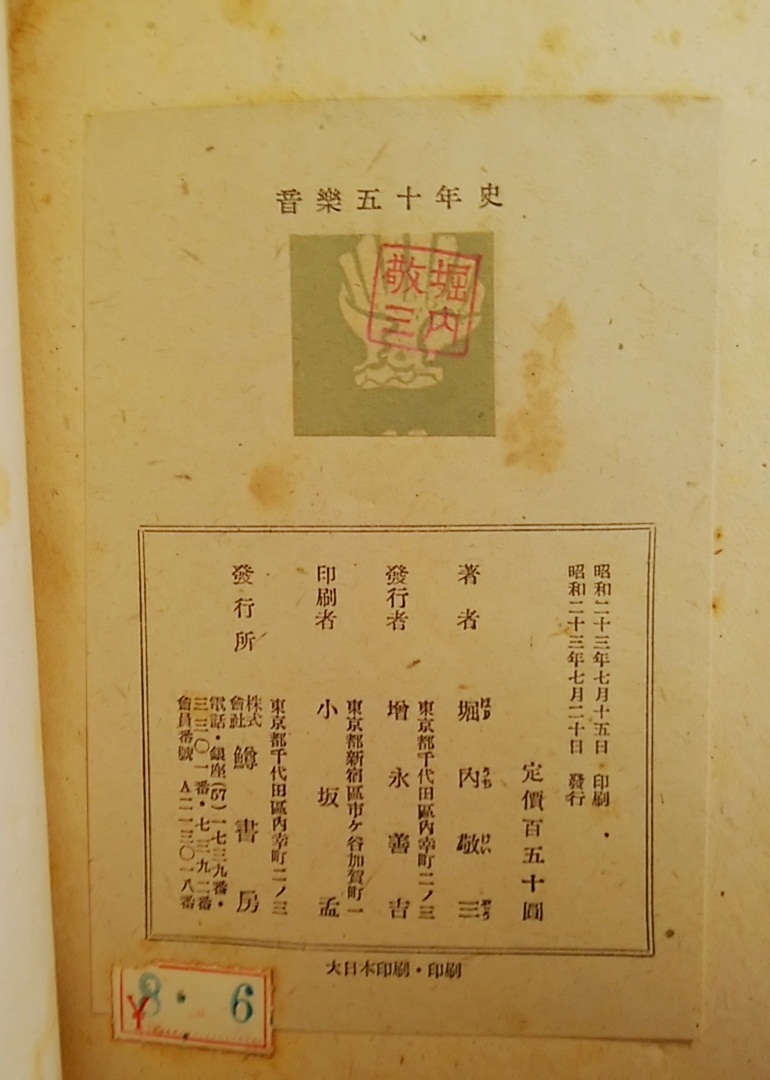 音樂五十年史
堀内
敬三
昭和二十三年七月十五日 印刷
昭和二十三年七月二十日 發行
定價百五十圓
著者 堀内敬三
ほり うち けい ざう
東京都千代田區内幸町二ノ三
發行者 增永善吉
東京都新宿區市ケ谷加賀町一
印刷者 小坂孟
東京都千代田區内幸町二ノ三
發行所 株式會社 鱒書房
電話・銀座(57)一七三九番・
三三〇一番・七三九二番
會員番號 A二一三〇一八番
大日本印刷・印刷
¥8・6